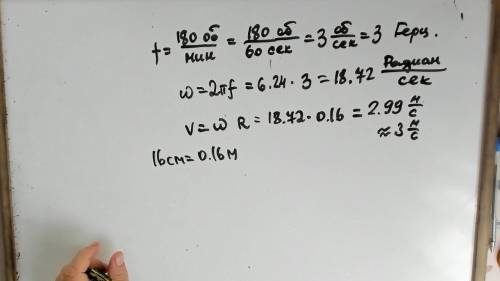 f = 180 об/мин = 180 об/60 сек = 3 об/сек = 3 Герц.
ω = 2πf = 6.24 · 3 = 18.72 Радиан/сек
V = ω R = 18.72 · 0.16 = 2.99 м/с
≈ 3 м/с
16 см = 0.16 м